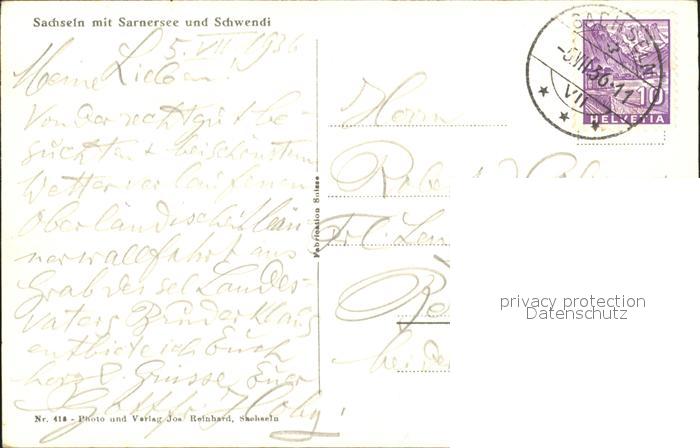 Sachseln mit Sarnersee und Schwendi
5. VII 1936
Meine Lieben!
Von der recht gut be-
suchten & bei schönstem
Wetter verlaufenen
Oberländischen Män-
nerwallfahrt ans
Grab des sel. Landes-
vaters Bruder Klaus
entbiete ich Euch
herzl. Grüsse Euer
Nr. 418 - Photo und Verlag Jos. Reinhard, Sachseln
Fabrication Suisse
Herrn
Robert
SACHSELN
-5.VII.36-11
VII
10
HELVETIA
privacy protection
Datenschutz